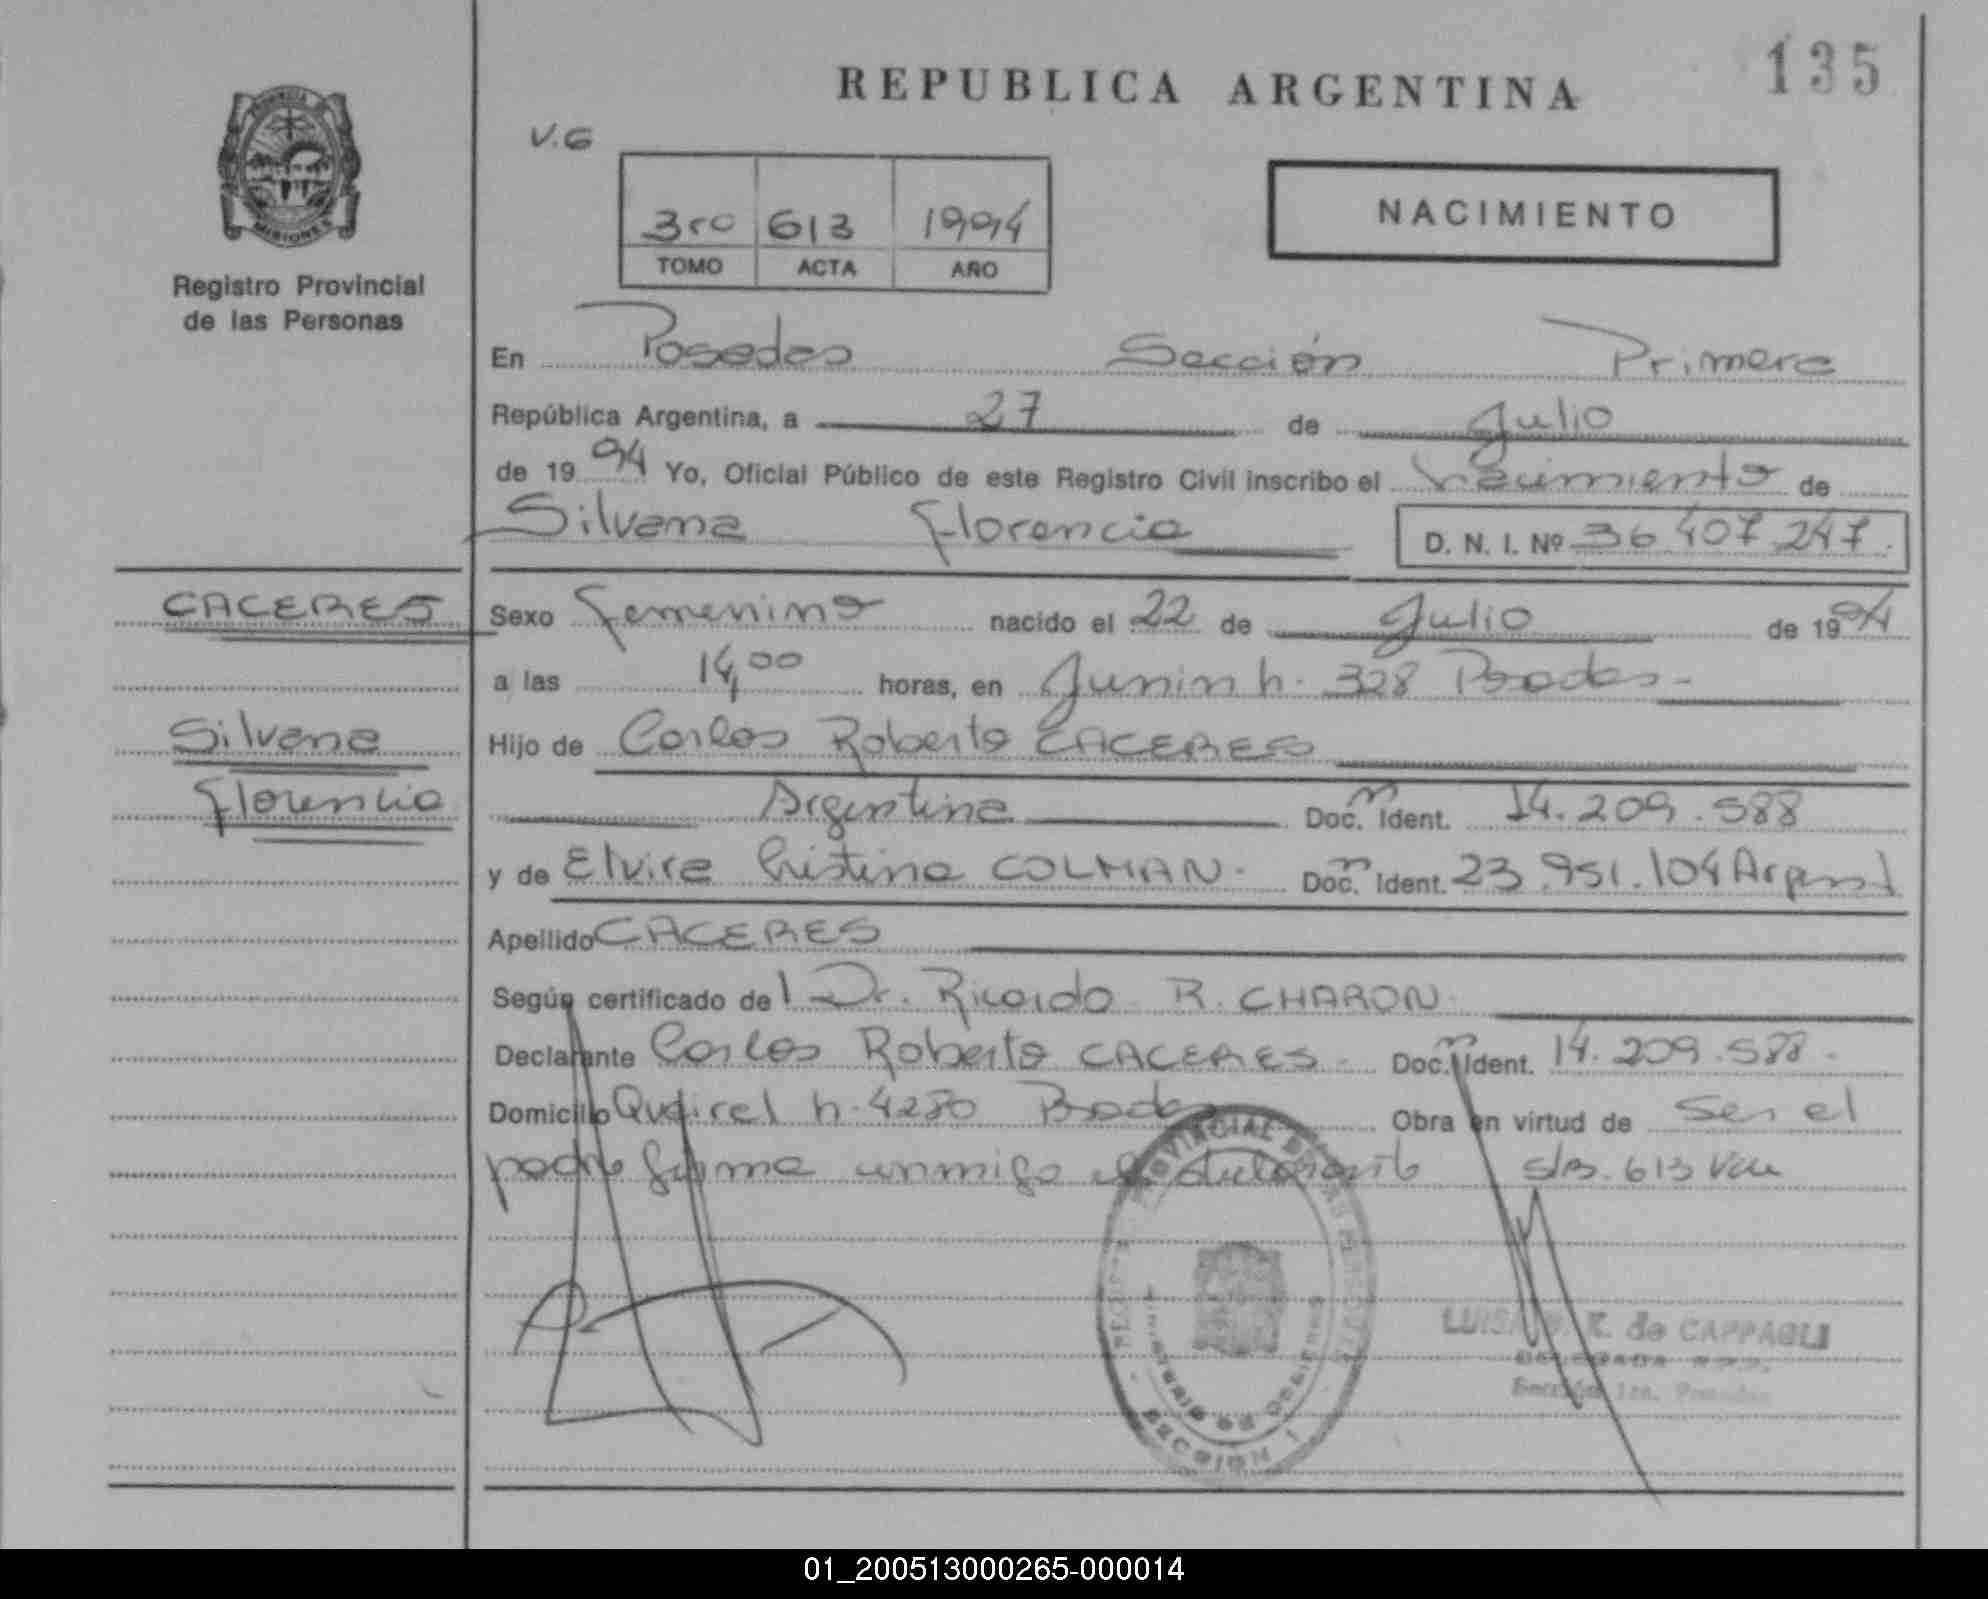 135
REPUBLICA ARGENTINA
V.G
NACIMIENTO
3ro 613 1994
TOMO ACTA AÑO
MISIONES
Registro Provincial
de las Personas
En Posadas Sección Primera
República Argentina, a 27 de Julio
de 1994 Yo, Oficial Público de este Registro Civil inscribo el Nacimiento de
Silvana Florencia D. N. I. Nº 36.407.247.
CACERES
Sexo Femenino nacido el 22 de Julio de 1994
a las 14,00 horas, en Junin n. 328 Posadas-
Silvana
Hijo de Carlos Roberto CACERES
Florencia
Argentina Doc. Ident. 14.209.588
y de Elvira Cristina COLMAN. Doc. Ident. 23.951.104 Argent
Apellido CACERES
Según certificado del Dr. Ricardo R. CHARON.
Declarante Carlos Roberto CACERES. Doc. Ident. 14.209.588.
Domicilio Quaircel n. 4280 Posadas Obra en virtud de Ser el
padre firma conmigo el declarante S/B. 613 Vale
PROVINCIAL DE LAS PERSONAS
MINISTERIO DE GOBIERNO
SECCION 1
LUISA de CAPPAGLI
DELEGADA
Sección 1ra. Posadas
01_200513000265-000014